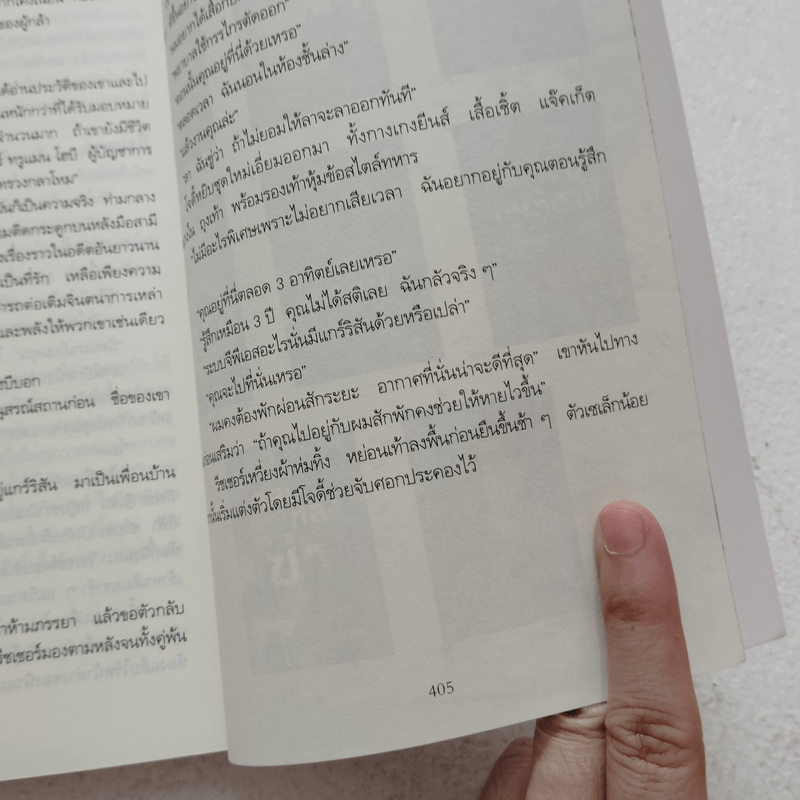 ของผู้กล้า
ได้อ่านประวัติของเขาและไป
นหนักกว่าที่ได้รับมอบหมาย
จำนวนมาก ถ้าเขายังมีชีวิต
ทรูแมน โฮบี ผู้บัญชาการ
ทรวงกลาโหม"
นก็เป็นความจริง ท่ามกลาง
มติดกระดูกบนหลังมือสามี
งเรื่องราวในอดีตอันยาวนาน
เป็นที่รัก เหลือเพียงความ
ารถต่อเติมจินตนาการเหล่า
และพลังให้พวกเขาเช่นเดียว
บีบอก
นุสรณ์สถานก่อน ชื่อของเขา
แกร์ริสัน มาเป็นเพื่อนบ้าน
ห้ามภรรยา แล้วขอตัวกลับ
รีชเชอร์มองตามหลังจนทั้งคู่พ้น
พยาบาลใช้กรรไกรตัดออก"
ตอนนั้นคุณอยู่ที่นี่ด้วยเหรอ"
ตลอดเวลา ฉันนอนในห้องชั้นล่าง"
แล้วงานคุณล่ะ"
ลา ฉันขู่ว่า ถ้าไม่ยอมให้ลาจะลาออกทันที"
โจดี้หยิบชุดใหม่เอี่ยมออกมา ทั้งกางเกงยีนส์ เสื้อเชิ้ต แจ๊คเก็ต
ถุงเท้า พร้อมรองเท้าหุ้มข้อสไตล์ทหาร
"ไม่มีอะไรพิเศษเพราะไม่อยากเสียเวลา ฉันอยากอยู่กับคุณตอนรู้สึก
"คุณอยู่ที่นี่ตลอด 3 อาทิตย์เลยเหรอ"
"รู้สึกเหมือน 3 ปี คุณไม่ได้สติเลย ฉันกลัวจริง ๆ"
"ระบบจีพีเอสอะไรนั่นมีแกร์ริสันด้วยหรือเปล่า"
"คุณจะไปที่นั่นเหรอ"
"ผมคงต้องพักผ่อนสักระยะ อากาศที่นั่นน่าจะดีที่สุด" เขาหันไปทาง
ก่อนเสริมว่า "ถ้าคุณไปอยู่กับผมสักพักคงช่วยให้หายไวขึ้น"
รีชเชอร์เหวี่ยงผ้าห่มทิ้ง หย่อนเท้าลงพื้นก่อนยืนขึ้นช้า ๆ ตัวเซเล็กน้อย
นั้นเริ่มแต่งตัวโดยมีโจดี้ช่วยจับศอกประคองไว้
405